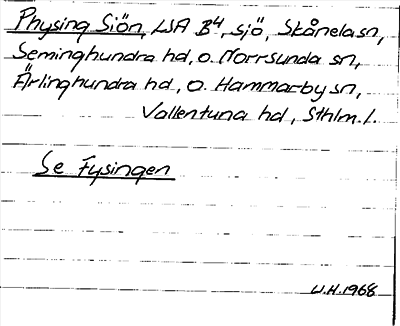 Physing Siön, LSA B4, sjö, Skånela sn,
Seminghundra hd, o. Norrsunda sn,
Ärlinghundra hd, o. Hammarby sn,
Vallentuna hd, Sthlm. l.
Se Fysingen
U.H. 1968